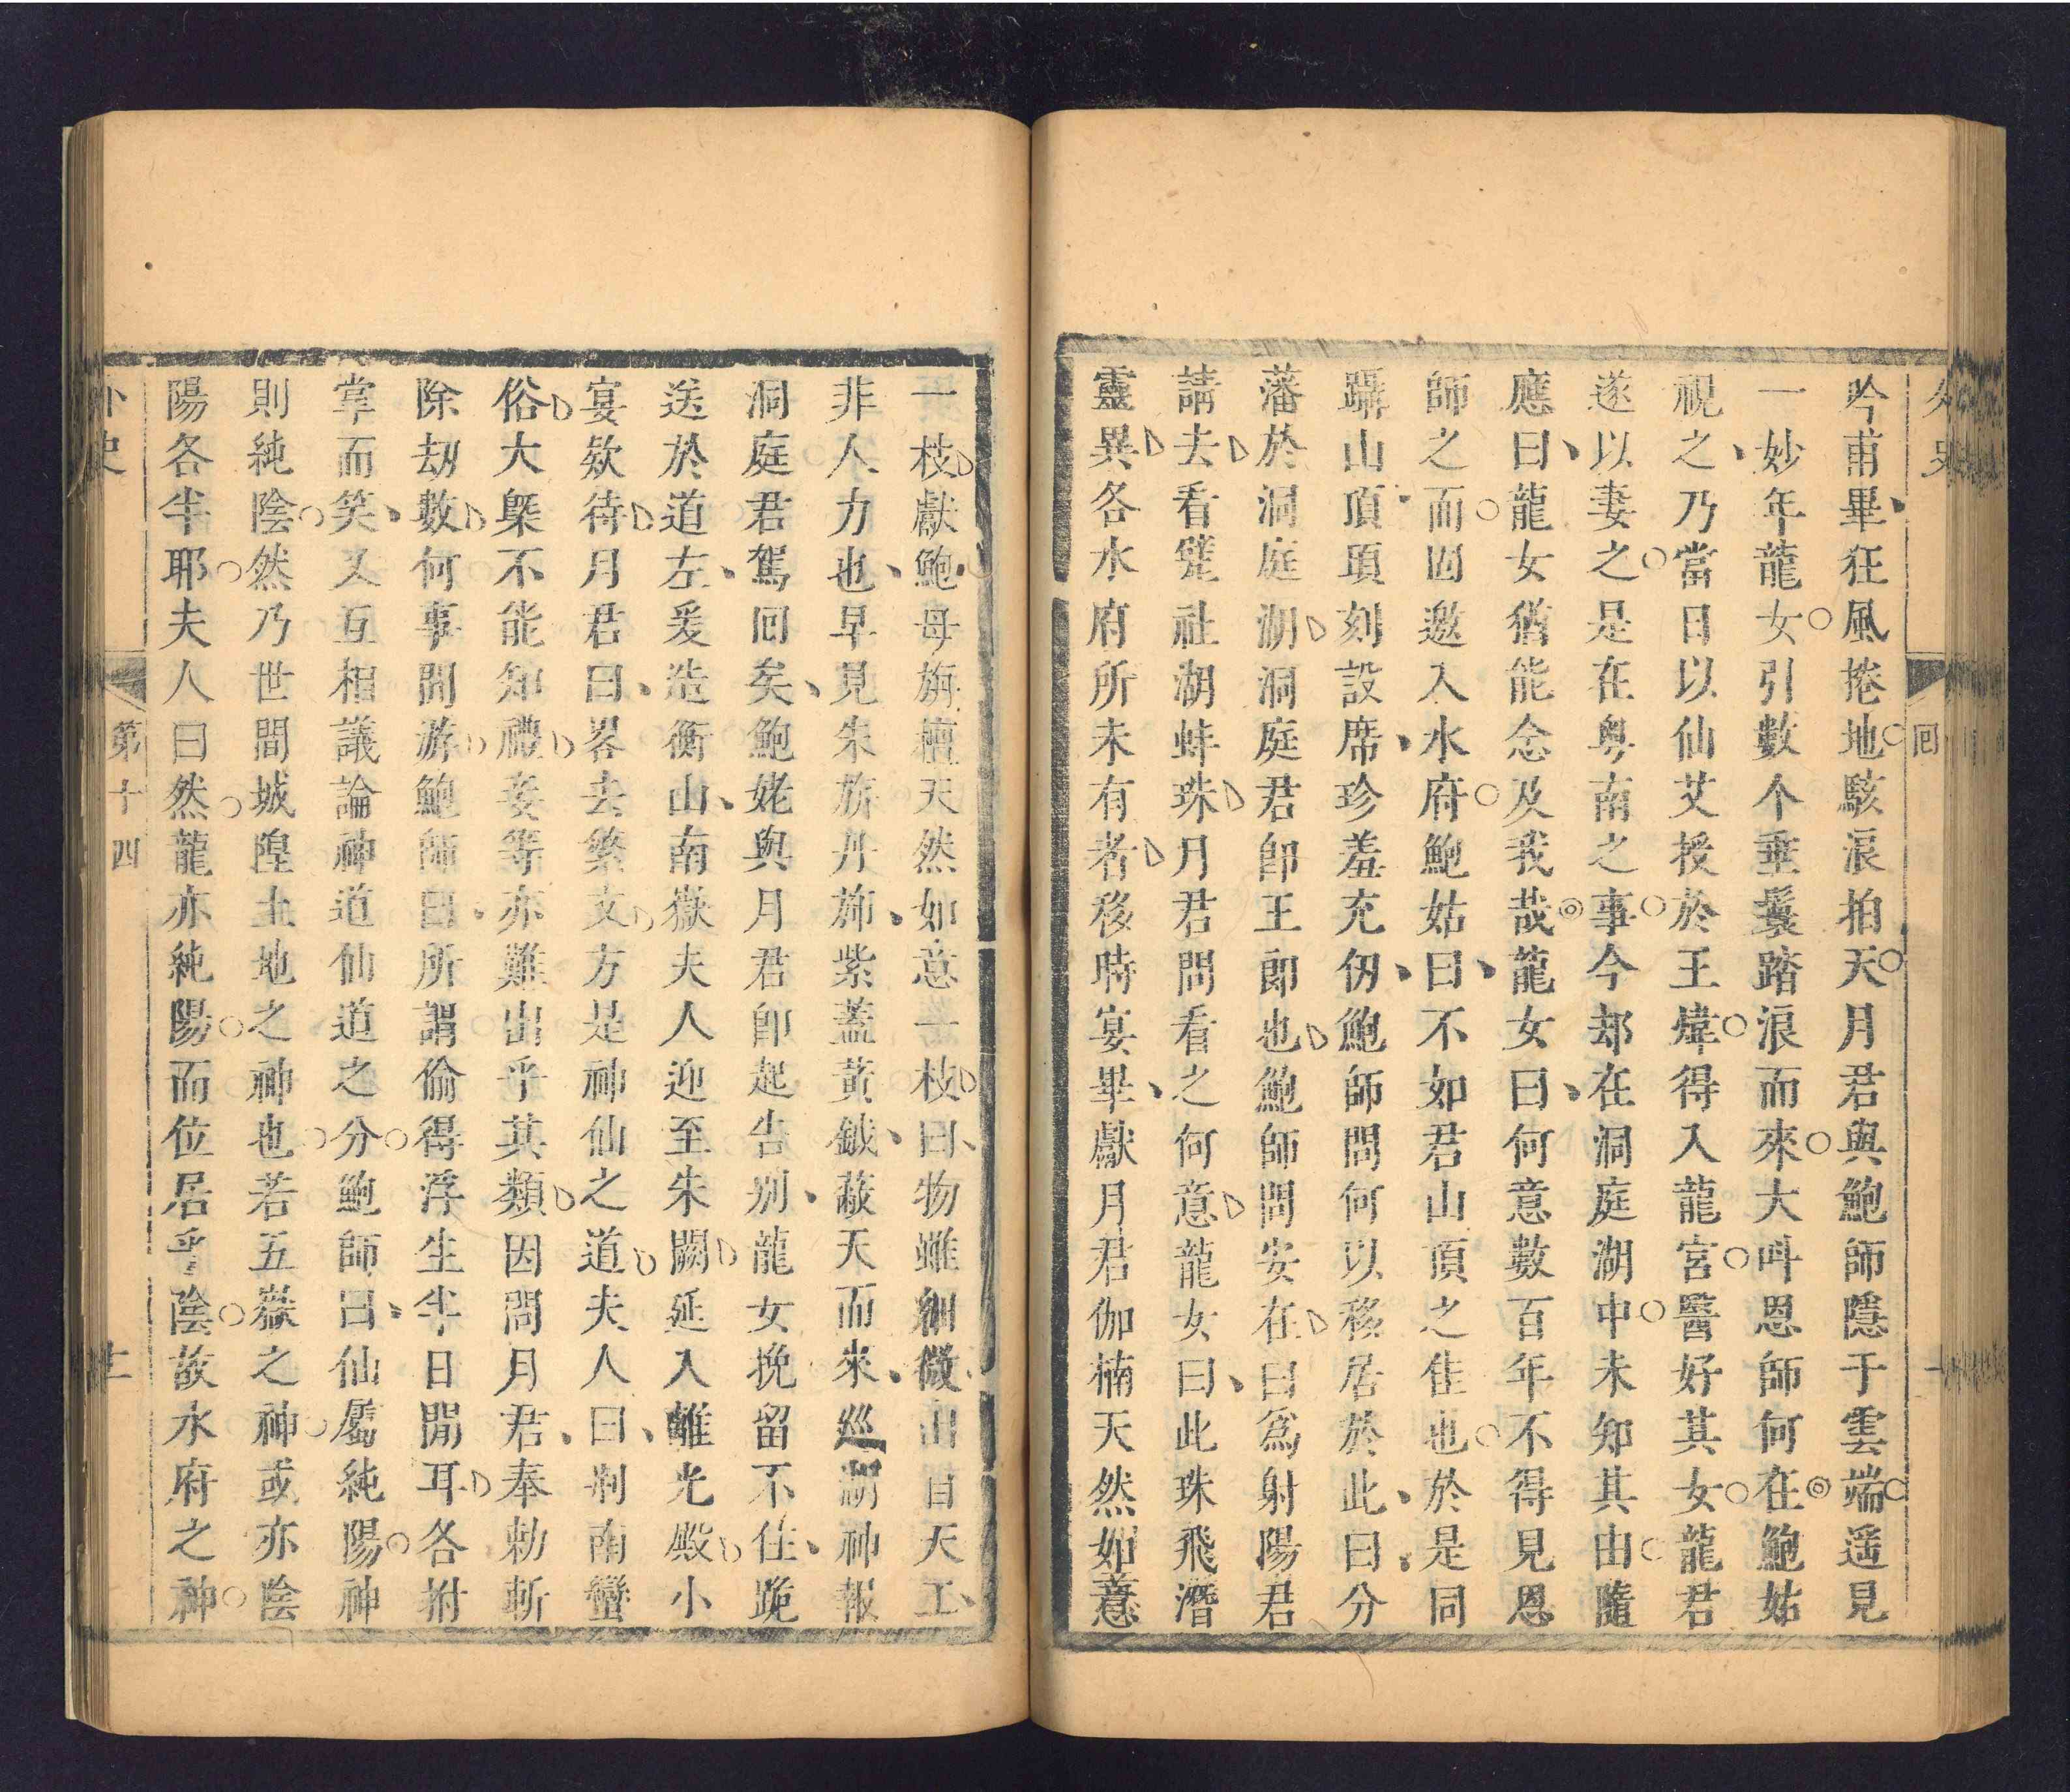 外史
回
吟甫畢狂風捲地駭浪拍天月君與鮑師隱于雲端遥見
一妙年龍女引數个垂鬟踏浪而來大呌恩師何在鮑姑
視之乃當日以仙艾授於王煒得入龍宫醫好其女龍君
遂以妻之是在粤南之事今却在洞庭湖中未知其由隨
應曰龍女猶能念及我哉龍女曰何意數百年不得見恩
師之而囙邀入水府鮑姑曰不如君山頂之佳也於是同
躡山頂頃刻設席珍羞充仞鮑師問何以移居於此曰分
藩於洞庭湖洞庭君卽王郎也鮑師問安在曰爲射陽君
請去看甓社湖蚌珠月君問看之何意龍女曰此珠飛潛
靈異各水府所未有者移時宴畢獻月君伽楠天然如意
一枝獻鮑母旃檀天然如意一枝曰物雖細微出自天工
非人力也早見朱旂丹旆紫蓋黃鉞蔽天而來巡湖神報
洞庭君駕回矣鮑姥與月君卽起告别龍女挽留不住跪
送於道左爰造衡山南嶽夫人迎至朱闕延入離光殿小
宴欵待月君曰畧去繁文方是神仙之道夫人曰荆南蠻
俗大槩不能知禮妾等亦難出乎其類因問月君奉勅斬
除刼數何事閒游鮑師曰所謂偷得浮生半日閒耳各拊
掌而笑又互相議論神道仙道之分鮑師曰仙屬純陽神
則純陰然乃世間城隍土地之神也若五嶽之神或亦陰
陽各半耶夫人曰然龍亦純陽而位居乎陰故水府之神
外史
第十四